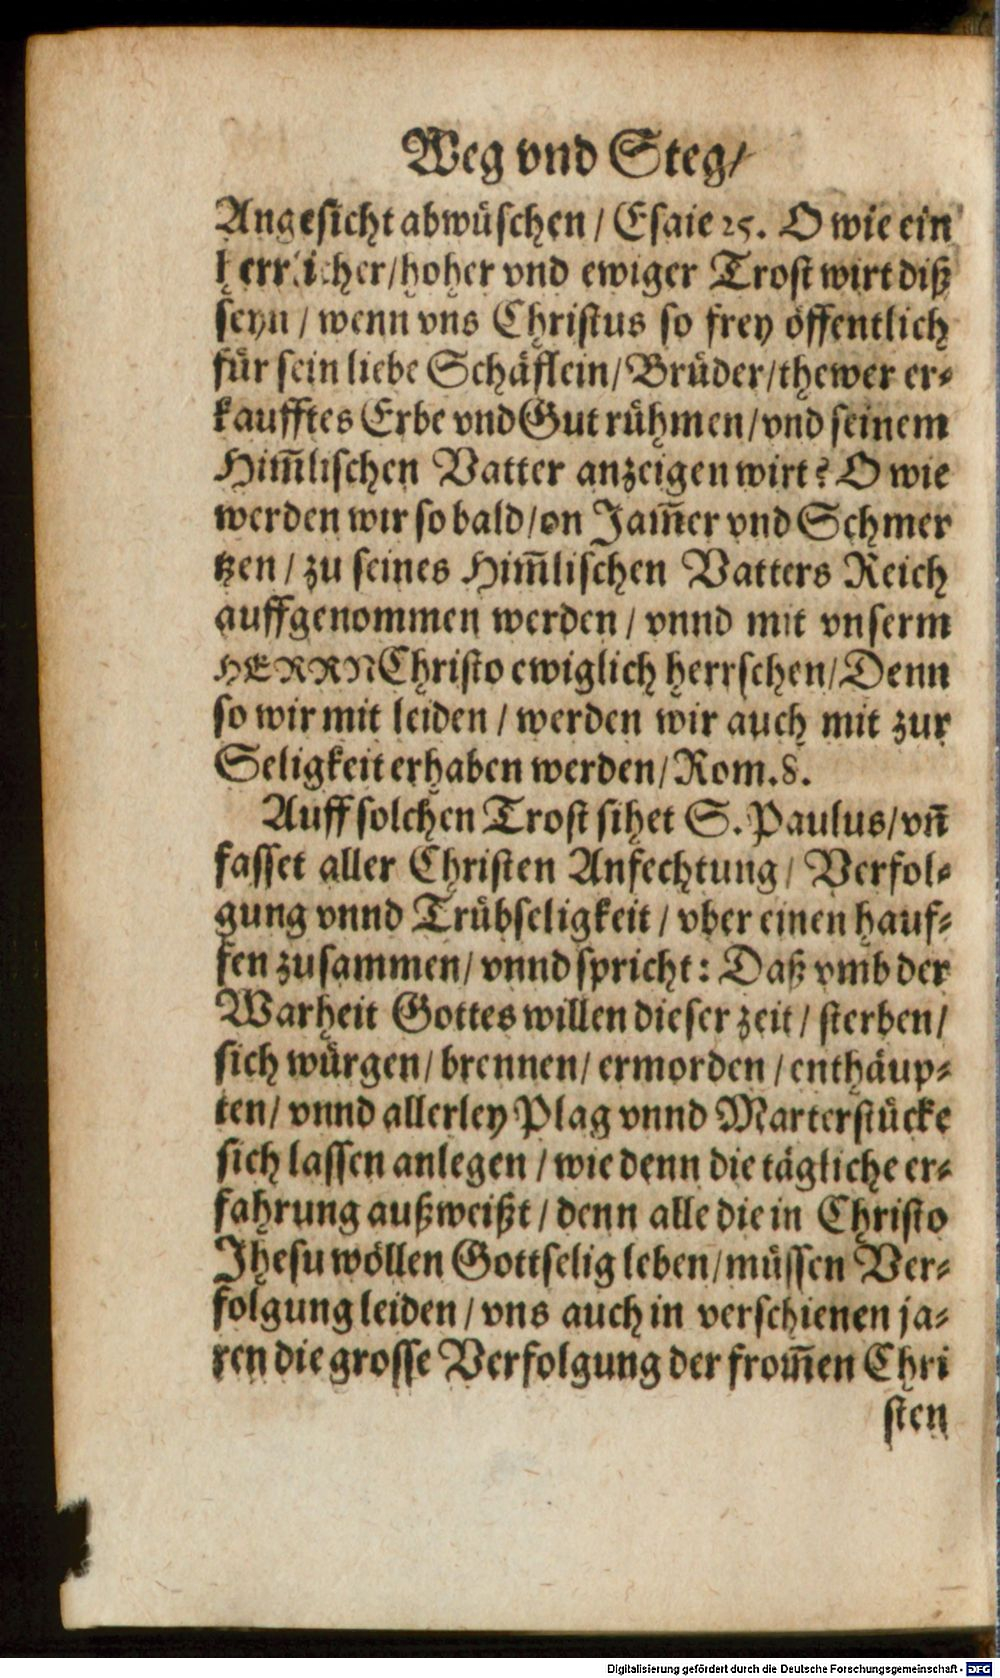 Weg vnd Steg/
Angesicht abwüschen / Esaie 25. O wie ein
herrlicher/hoher vnd ewiger Trost wirt diß
seyn / wenn vns Christus so frey öffentlich
für sein liebe Schäflein/Brüder/thewer er⸗
kaufftes Erbe vnd Gut rühmen/vnd seinem
Him̄lischen Vatter anzeigen wirt? O wie
werden wir so bald/on Jam̄er vnd Schmer
tzen / zu seines Him̄lischen Vatters Reich
auffgenommen werden / vnnd mit vnserm
HERRN Christo ewiglich herrschen/Denn
so wir mit leiden / werden wir auch mit zur
Seligkeit erhaben werden/Rom.8.
Auff solchen Trost sihet S. Paulus/vñ
fasset aller Christen Anfechtung / Verfol⸗
gung vnnd Trübseligkeit / vber einen hauf⸗
fen zusammen/ vnnd spricht: Daß vmb der
Warheit Gottes willen dieser zeit / sterben/
sich würgen/ brennen/ ermorden / enthäup⸗
ten/ vnnd allerley Plag vnnd Marterstücke
sich lassen anlegen / wie denn die tägliche er⸗
fahrung außweißt / denn alle die in Christo
Jhesu wöllen Gottselig leben/müssen Ver⸗
folgung leiden / vns auch in verschienen ja⸗
ren die grosse Verfolgung der from̄en Chri
sten
Digitalisierung gefördert durch die Deutsche Forschungsgemeinschaft - DFG